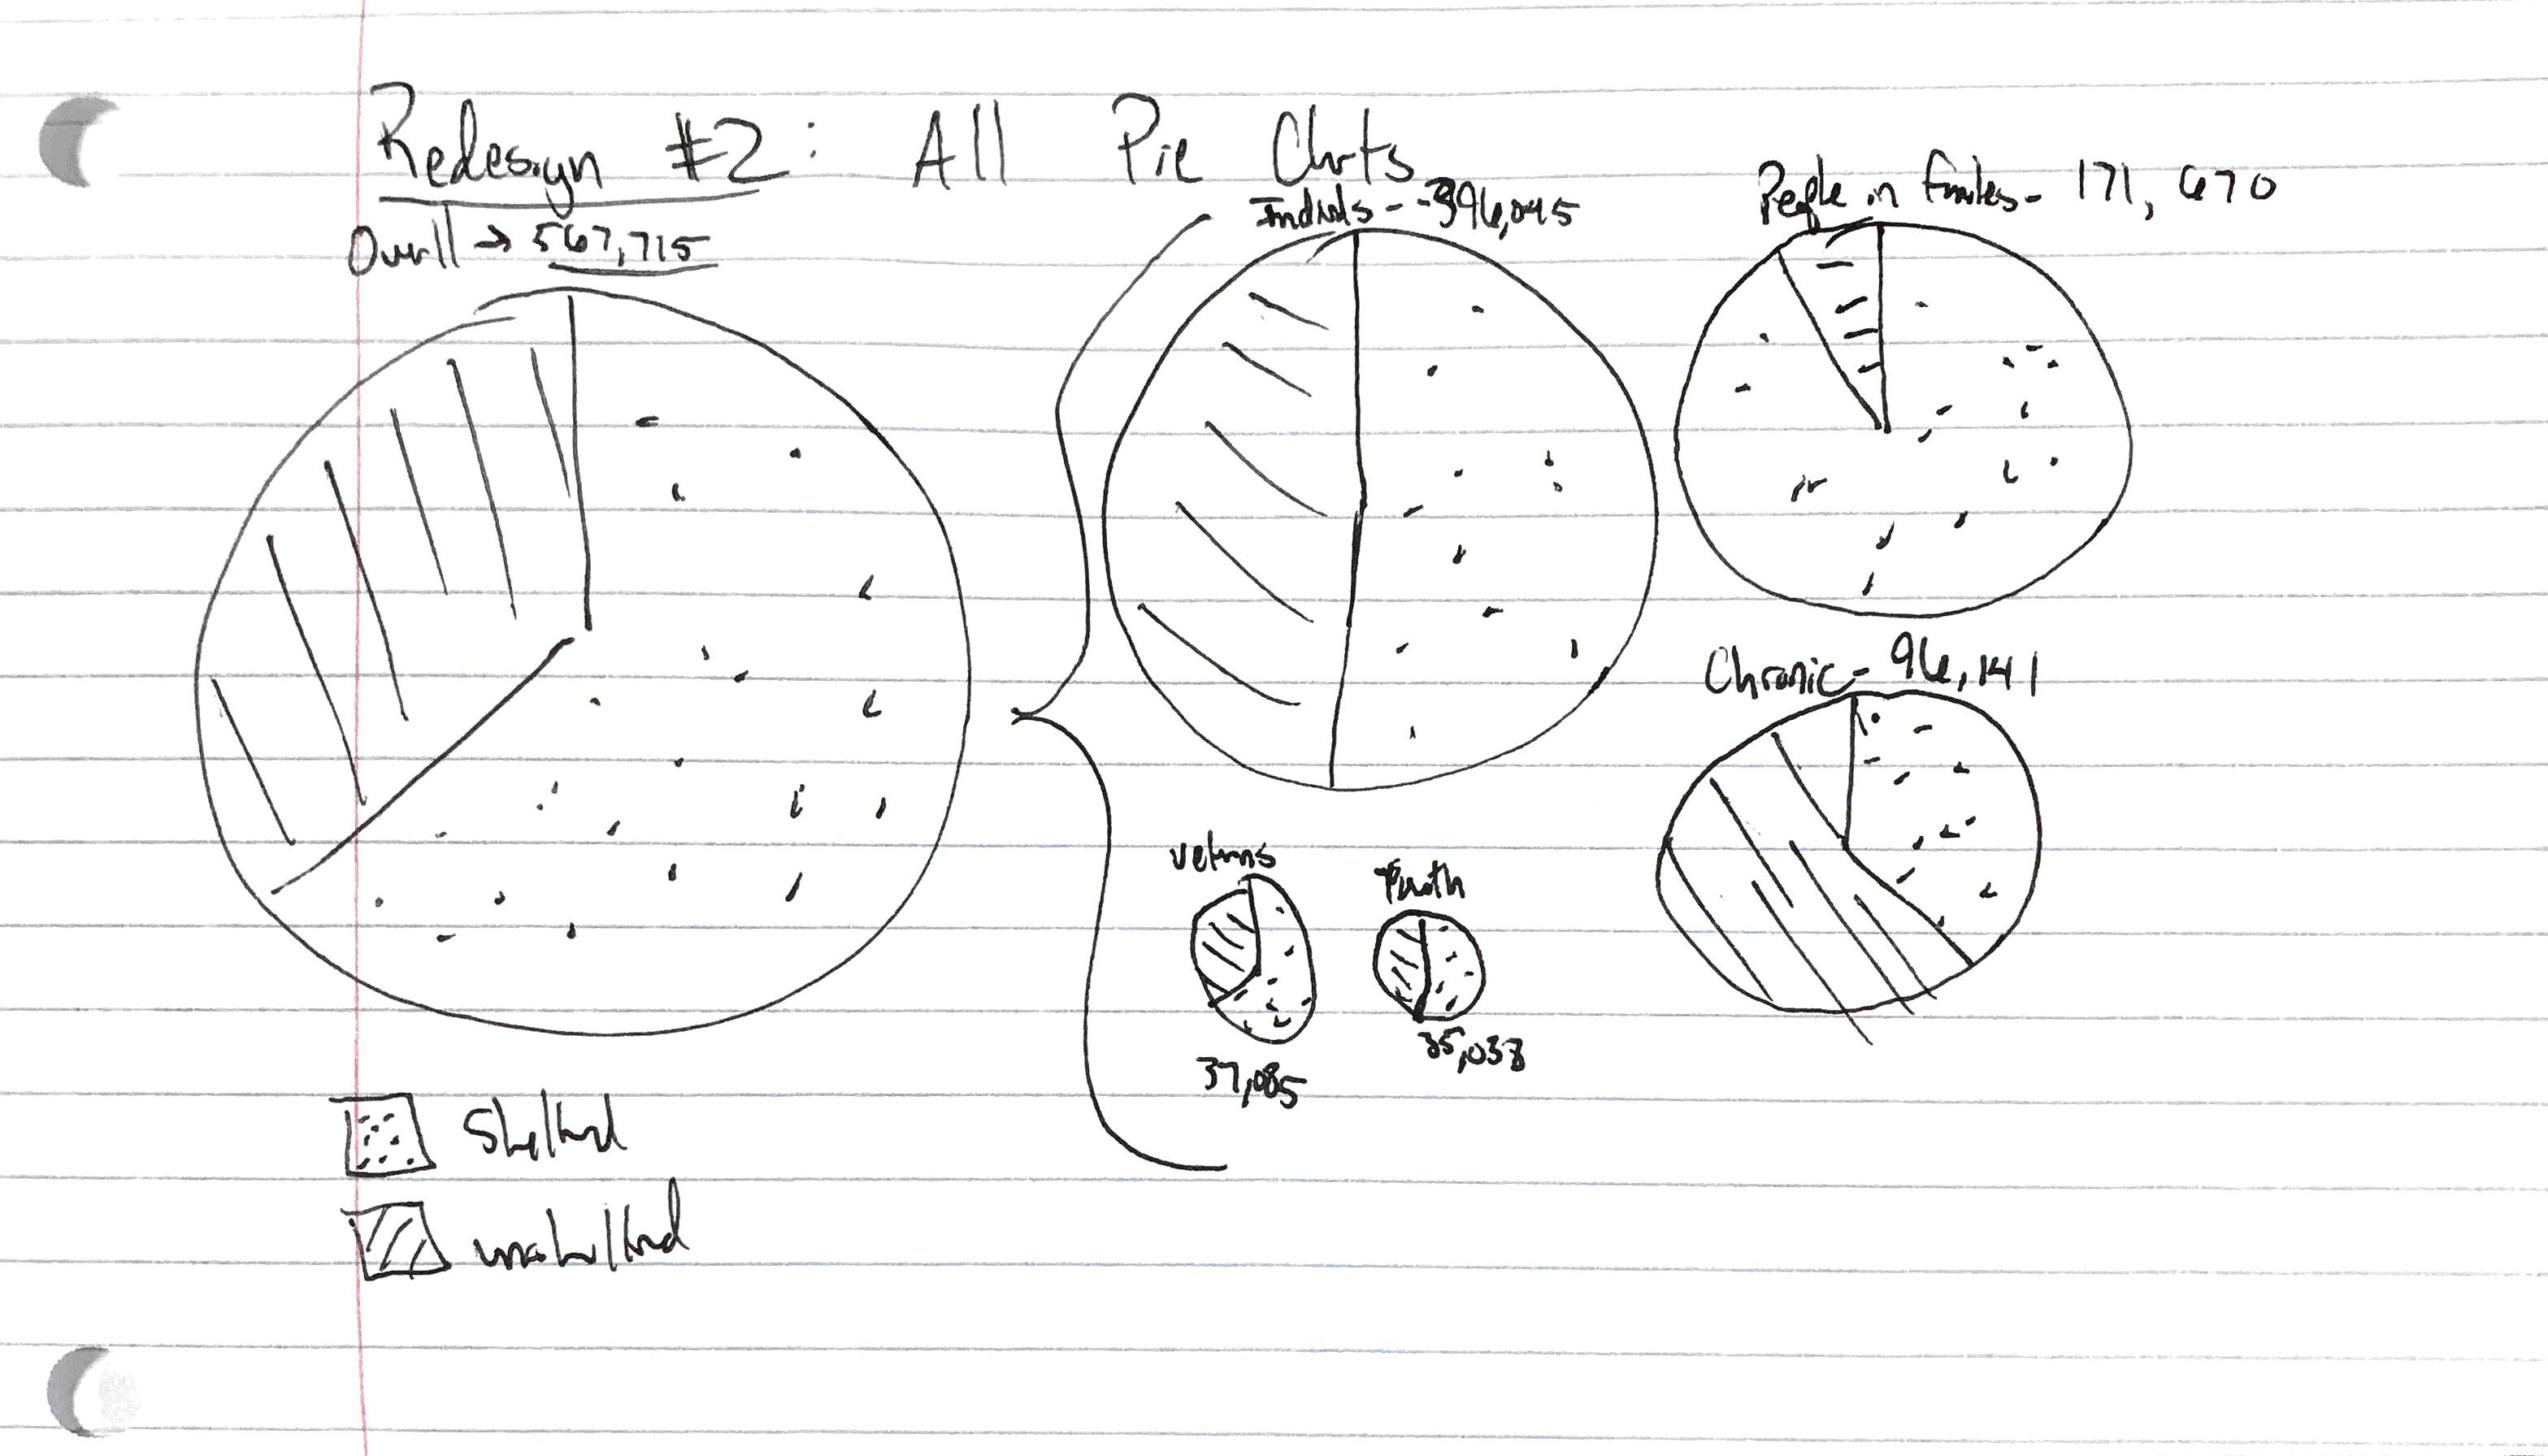 Redesign #2: All Pie Chrts
Overll → 567,715
Individs - 396,045
People in Fmiles - 171,670
Chronic - 96,141
vetrns
37,085
Youth
35,038
Sheltrd
unsheltrd